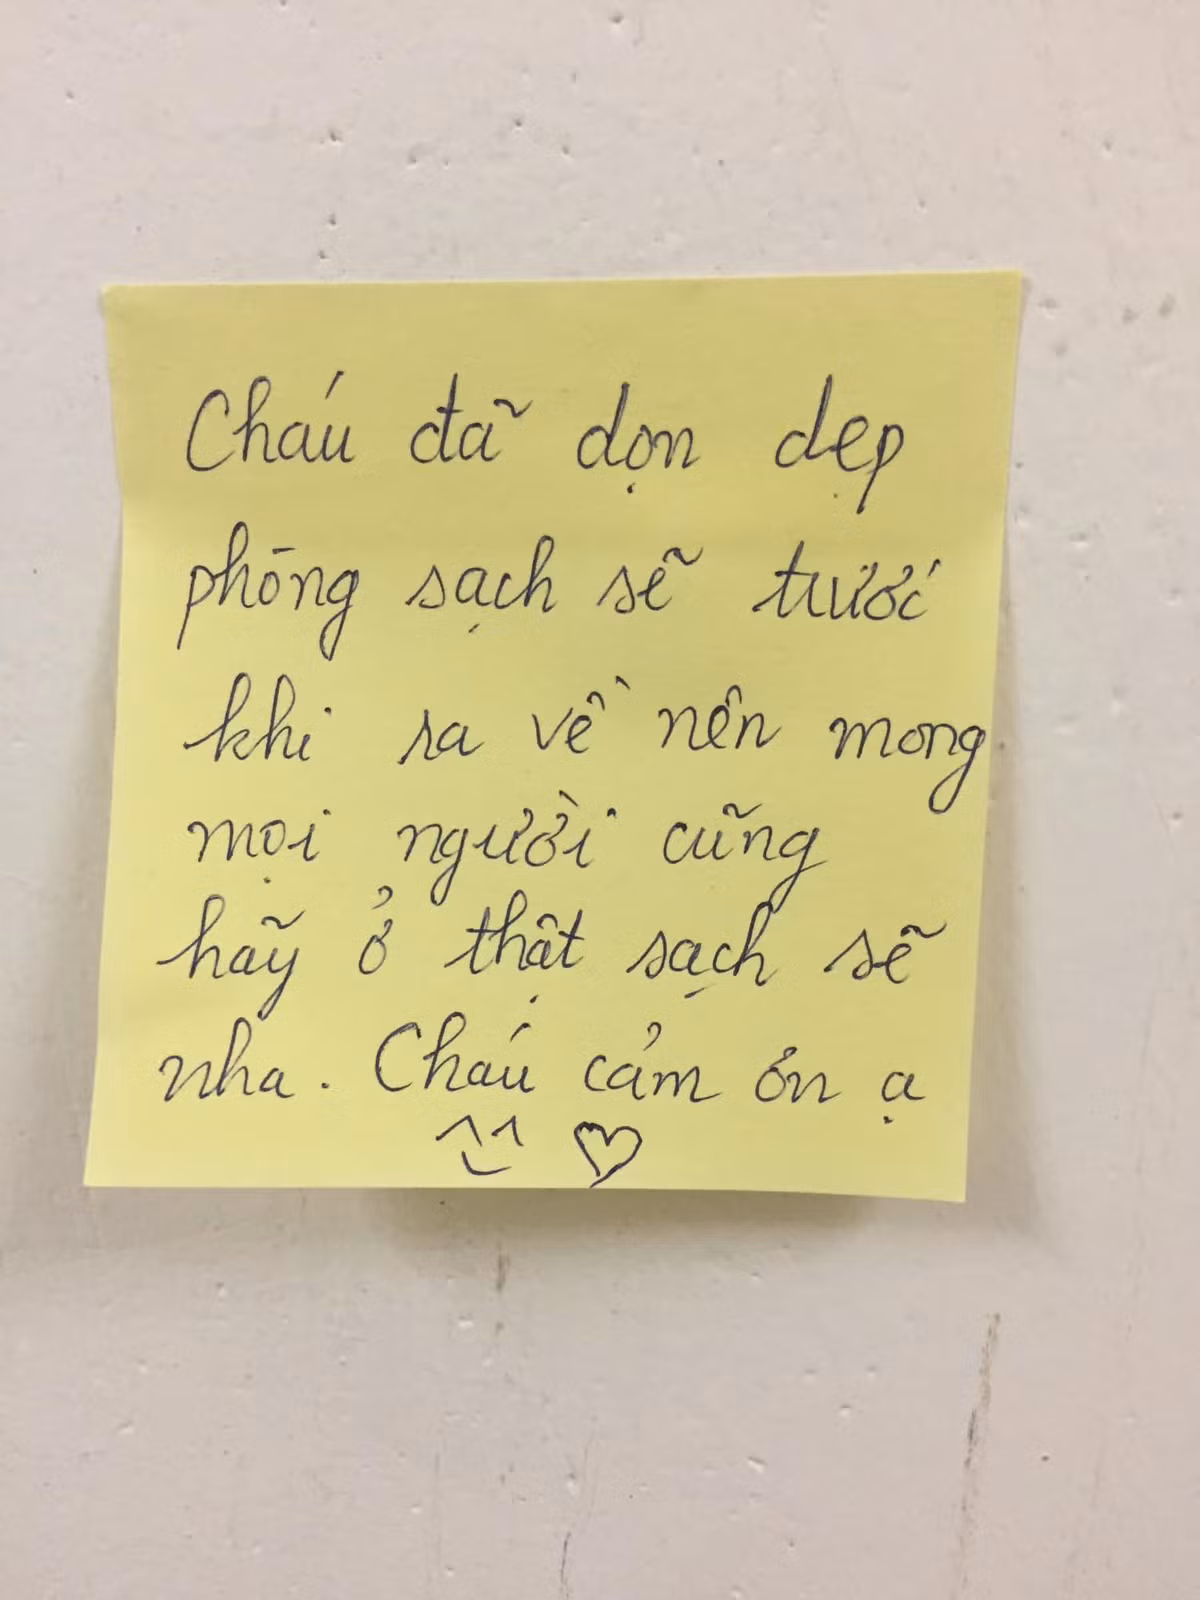 Cháu đã dọn dẹp
phòng sạch sẽ trước
khi ra về nên mong
mọi người cũng
hãy ở thật sạch sẽ
nha. Cháu cảm ơn ạ